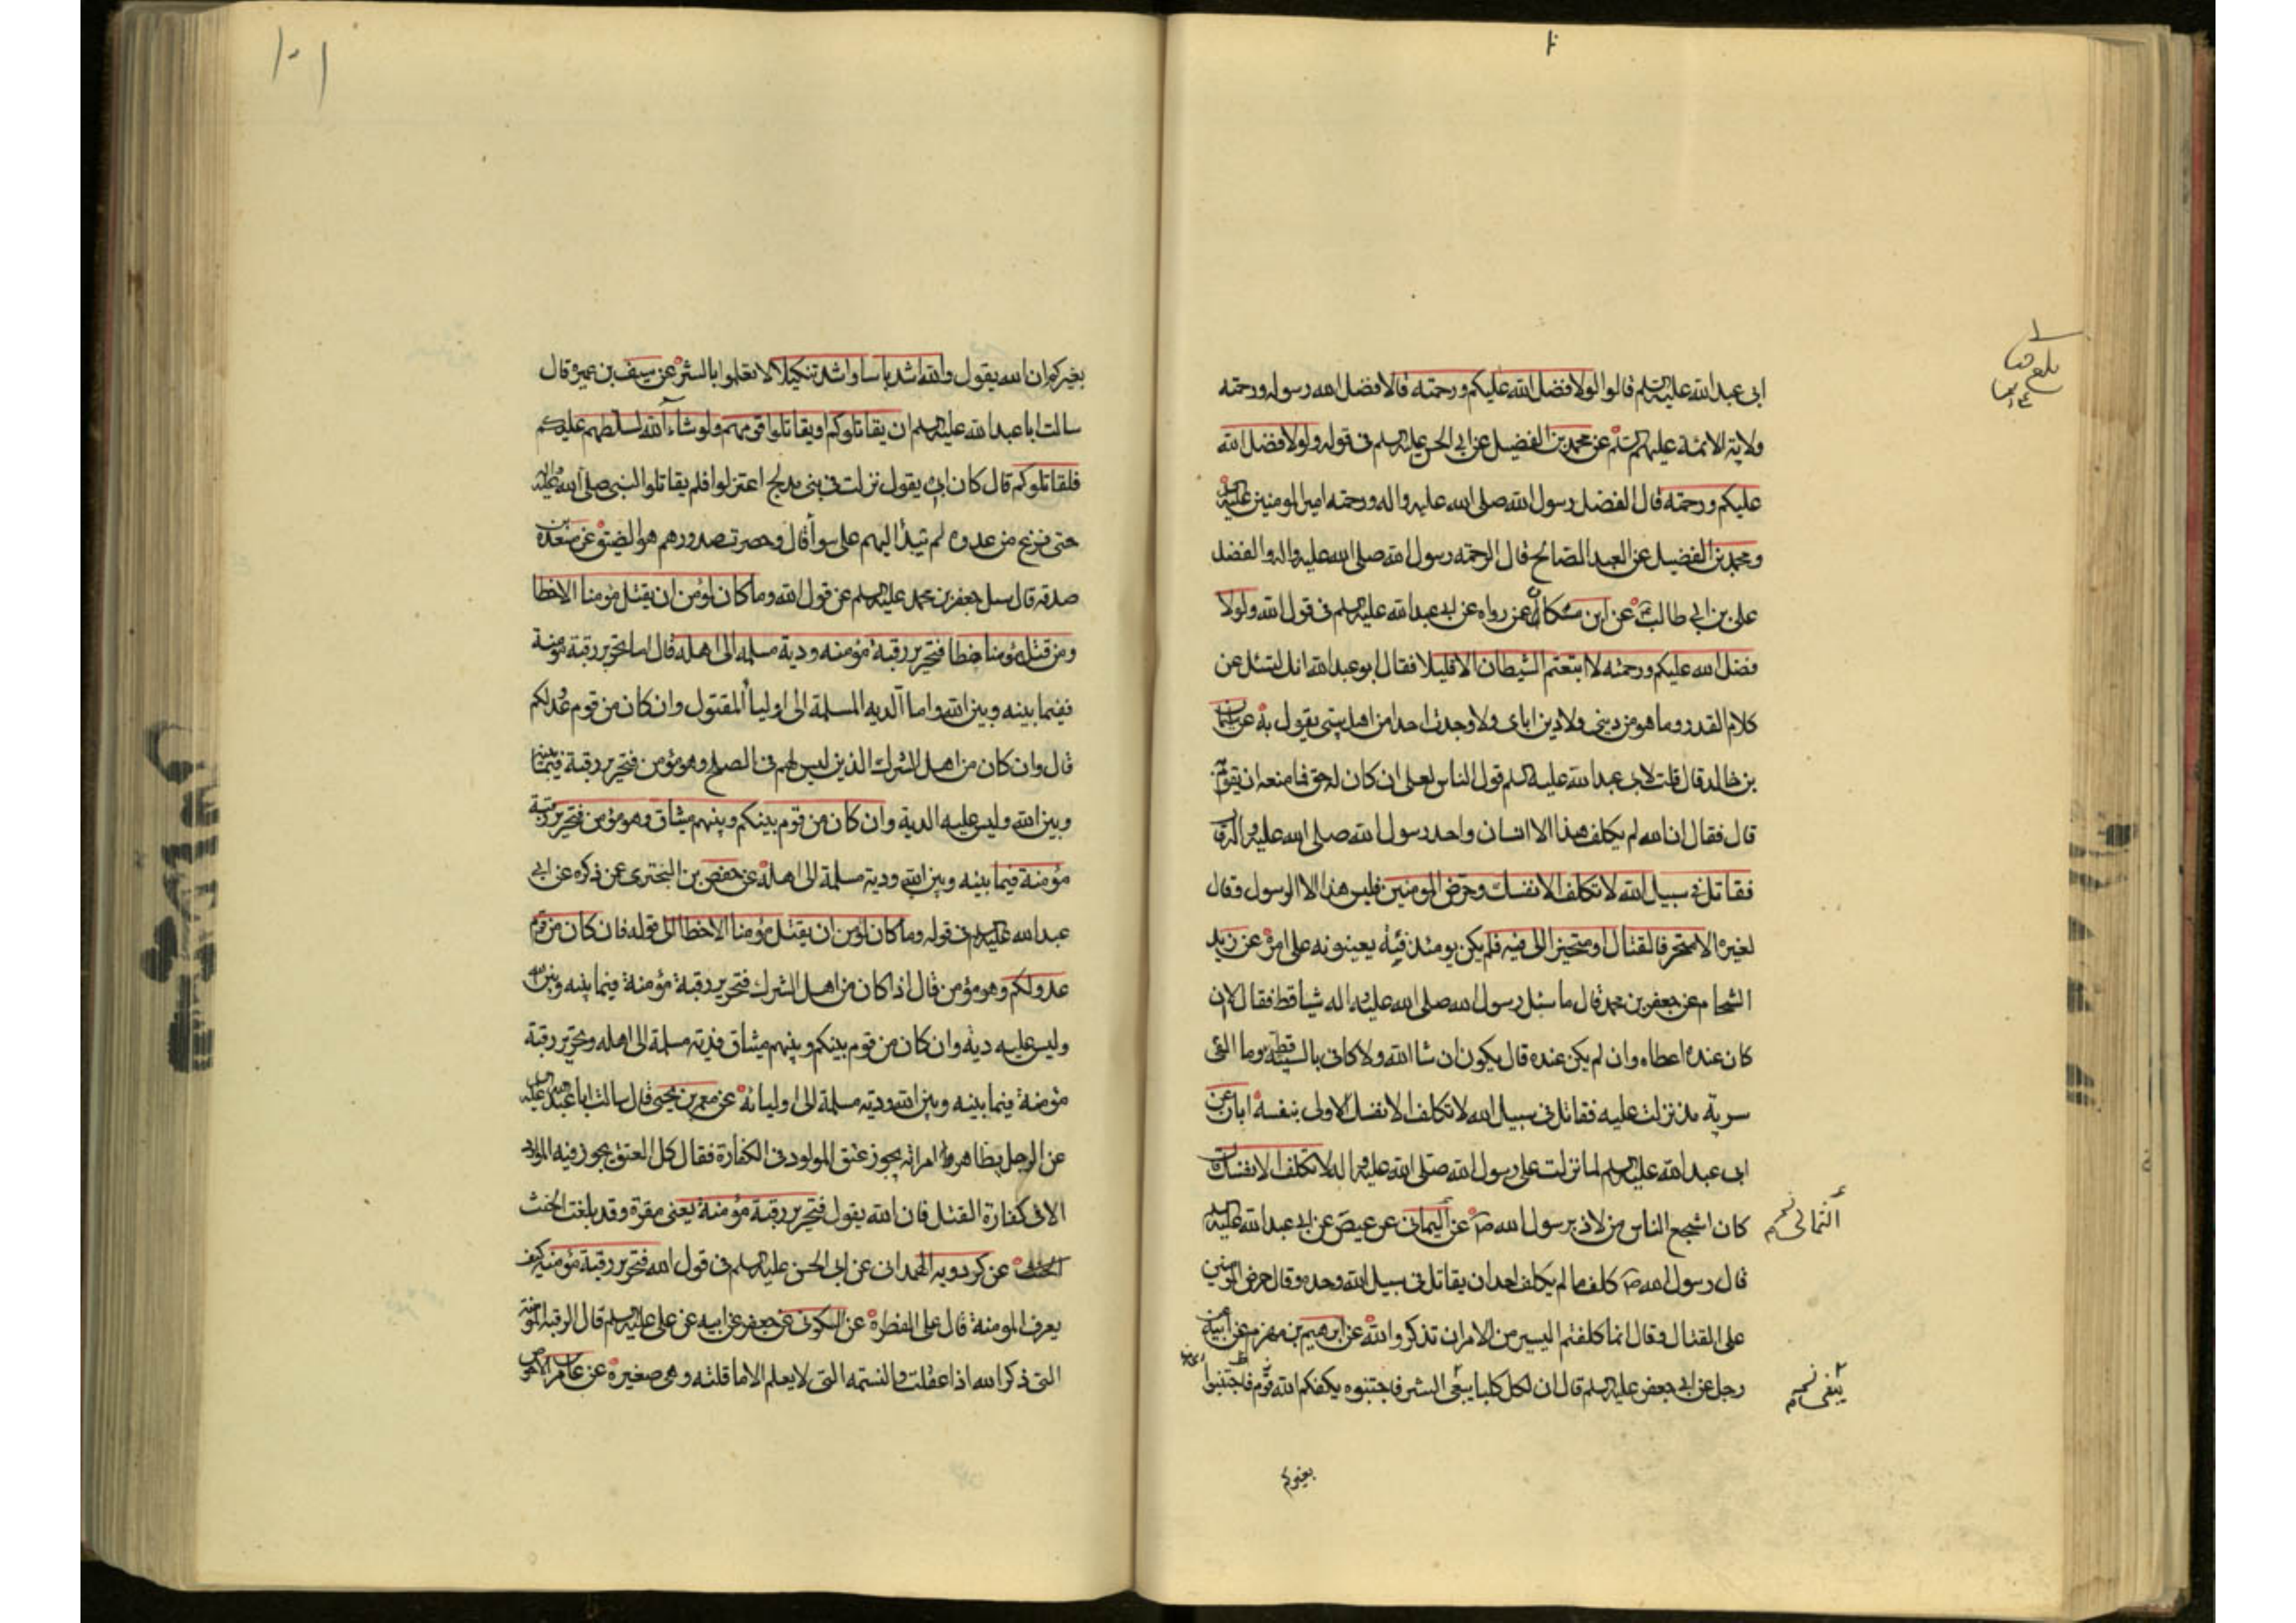 ابى عبدالله عليه السلم قالوا لولا فضل الله عليكم ورحمته قال فضل الله رسوله ورحمته
ولاية الائمة عليهم السلم عن محمد بن الفضيل عن ابى الحسن عليه السلم فى قوله ولولا فضل الله
عليكم ورحمته قال الفضل رسول الله صلى الله عليه واله ورحمته امير المومنين عليه
ومحمد بن الفضيل عن العبد الصالح قال الرحمة رسول الله صلى الله عليه واله والفضل
على بن ابى طالب عن ابن مسكان عمن رواه عن ابى عبدالله عليه السلم فى قول الله ولولا
فضل الله عليكم ورحمته لاتبعتم الشيطان الا قليلا فقال ابو عبدالله انك لتسئل عن
كلام القدر وما هو من دينى ولا دين اباى ولا وجدت احدا من اهل بيتى يقول به عن سليمان
بن خالد قال قلت لابى عبدالله عليه السلم قول الناس لعلى ان كان له حق فما منعه ان يقوم به
قال فقال ان الله لم يكلف هذا الا انسان واحد رسول الله صلى الله عليه واله قال
فقاتل فى سبيل الله لا تكلف الا نفسك وحرض المومنين فليس هذا الا الرسول وقال
لغيره الا متحرفا لقتال او متحيزا الى فئة فلم يكن يومئذ فئة يعينونه على امره عن زيد
الشحام عن جعفر بن محمد قال ما سئل رسول الله صلى الله عليه واله شيا قط فقال لا ان
كان عنده اعطاه وان لم يكن عنده قال يكون ان شا الله ولا كافى بالسيئة قط وما القى
سرية مذ نزلت عليه فقاتل فى سبيل الله لا تكلف الا نفسك الا ولى بنفسه ابان عن
ابى عبدالله عليه السلم لما نزلت على رسول الله صلى الله عليه واله لا تكلف الا نفسك قال
كان اشجع الناس من لاذ برسول الله ص عن اليمانى عن عيص عن ابى عبدالله عليه السلم
الثمالى نخ
قال رسول الله ص كلف ما لم يكلف احد ان يقاتل فى سبيل الله وحده وقال حرض المومنين
على القتال وقال انما كلفتم اليسير من الامر ان تذكروا الله عن ابرهيم بن مهزم عن ابيه عن
رجل عن ابى جعفر عليه السلم قال ان لكل كلبا يبغى الشر فاجتنبوه يكفكم الله قوم فاجتنبوا
يبغى نخ
بغيركم
١٠١
بغيركم ان الله يقول والله اشد باسا واشد تنكيلا لا تعلموا بالشر عن سيف بن عميره قال
سالت ابا عبدالله عليه السلم ان يقاتلوكم او يقاتلوا قومهم ولو شاء الله لسلطهم عليكم
فلقاتلوكم قال كان ابى يقول نزلت فى بنى مدلج اعتزلوا فلم يقاتلوا النبى صلى الله عليه واله
صدقه قال سئل جعفر بن محمد عليه السلم عن قول الله وما كان لمؤمن ان يقتل مؤمنا الا خطا
ومن قتل مؤمنا خطا فتحرير رقبة مؤمنه ودية مسلمه الى اهله قال اما تحرير رقبة مؤمنة
ففيما بينه وبين الله واما الديه المسلمة الى اوليا المقتول وان كان من قوم عدو لكم
قال وان كان من اهل الشرك الذين ليس لهم فى الصلح وهو مؤمن فتحرير رقبة فيما بينه
وبين الله وليس عليه الدية وان كان من قوم بينكم وبينهم ميثاق وهو مؤمن فتحرير رقبة
مؤمنة فيما بينه وبين الله ودية مسلمة الى اهله عن حفص بن البخترى عن ذكره عن ابى
عبدالله عليه السلم فى قوله وما كان لمؤمن ان يقتل مؤمنا الا خطا الى قوله فان كان من قوم
عدو لكم وهو مؤمن قال اذا كان من اهل الشرك فتحرير رقبة مؤمنة فيما بينه وبين الله
وليس عليه دية وان كان من قوم بينكم وبينهم ميثاق فدية مسلمة الى اهله وتحرير رقبة
مؤمنة فيما بينه وبين الله ودية مسلمة الى اوليائه عن معمر بن يحيى قال سالت ابا عبدالله عليه السلم
عن الرجل يظاهر من امراته يجوز عتق المولود فى الكفارة فقال كل العتق يجوز فيه المولود
الا فى كفارة القتل فان الله يقول فتحرير رقبة مؤمنة يعنى مقرة وقد بلغت الحنث
عن كردويه الهمدانى عن ابى الحسن عليه السلم فى قول الله فتحرير رقبة مؤمنة كيف
يعرف المومنة قال على الفطرة عن السكونى عن جعفر عن ابيه عن على عليه السلم قال الرقبة المؤمنة
التى ذكر الله اذا عقلت والنسمه التى لا يعلم الا ما قلته وهى صغيرة عن عامر بن الاحوص